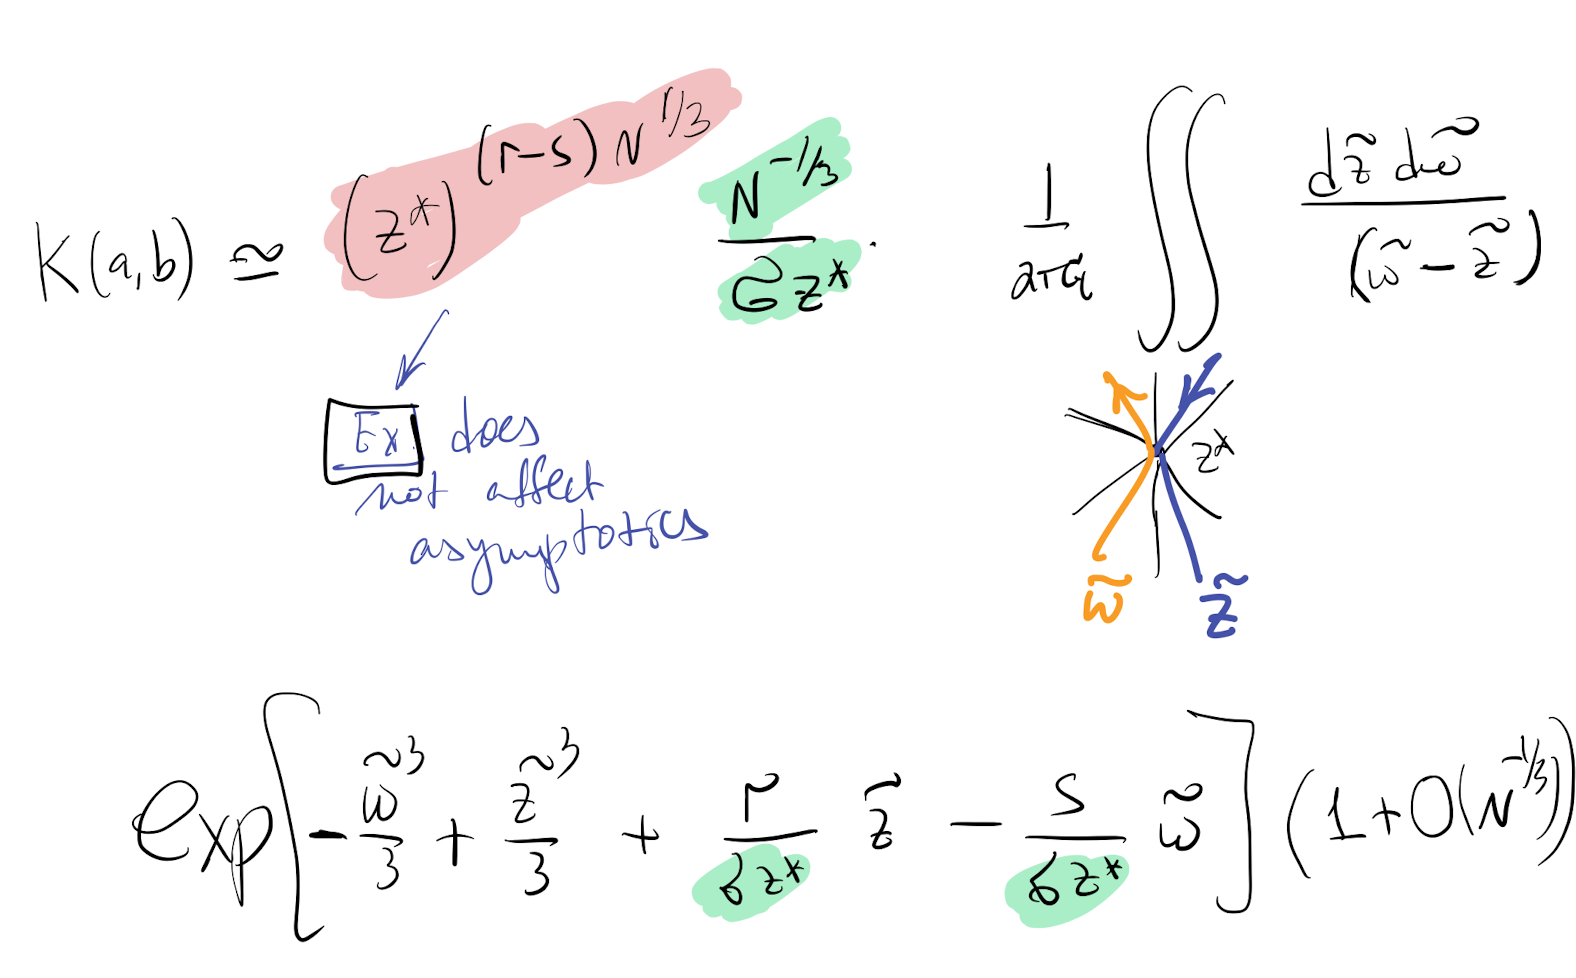 K(a,b) ≃ (z*)^{(r-s) N^{1/3}} \frac{N^{-1/3}}{σ z*} · \frac{1}{2πi} ∬ \frac{d\tilde{z} d\tilde{w}}{(\tilde{w} - \tilde{z})}
z*
Ex. does
not affect
asymptotics
\tilde{w} \tilde{z}
exp[ -\frac{\tilde{w}^3}{3} + \frac{\tilde{z}^3}{3} + \frac{r}{σ z*} \tilde{z} - \frac{s}{σ z*} \tilde{w} ] (1 + O(N^{-1/3}))